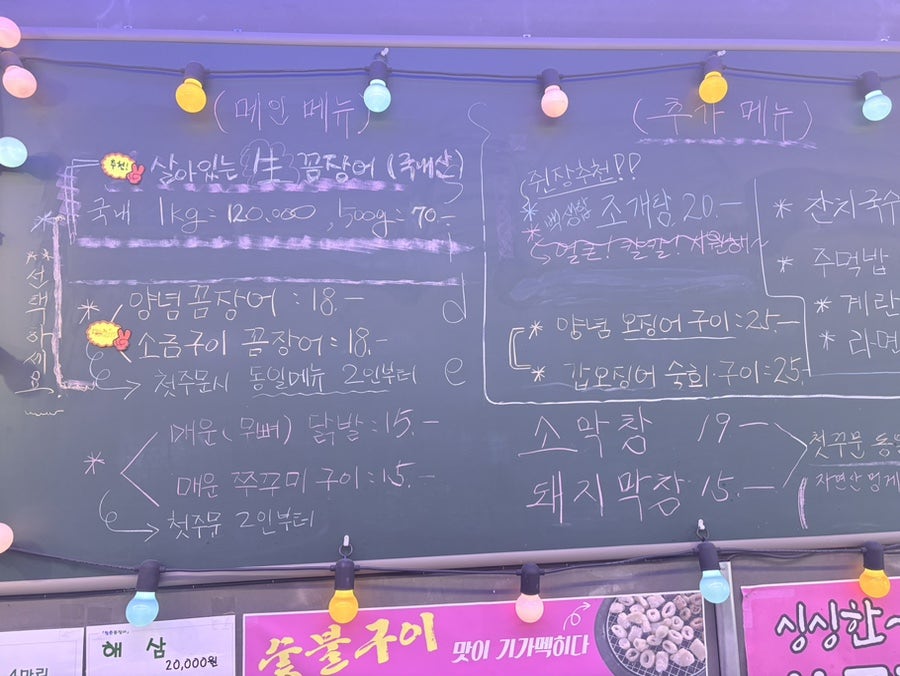 (메인 메뉴)
추천!
살아있는 生 꼼장어 (국내산)
국내 1kg = 120.000, 500g = 70.-
**선택하세요!
* 양념 꼼장어 : 18.-
소금구이 꼼장어 : 18.-
첫주문시 동일메뉴 2인부터
side
* 매운(무뼈) 닭발 : 15.-
매운 쭈꾸미 구이 : 15.-
첫주문 2인부터
(추가 메뉴)
쥔장추천!!
* 백생합 조개탕 20.-
* 얼큰! 칼칼! 시원해~
* 양념 오징어 구이 : 25.-
* 갑오징어 숙회·구이 : 25.-
* 잔치국수
* 주먹밥
* 계란
* 라면
소막창 19.-
돼지막창 15.-
첫주문 동일
자연산 멍게
4마리
해 삼
20,000원
숯불구이
맛이 기가멕히다
싱싱한~